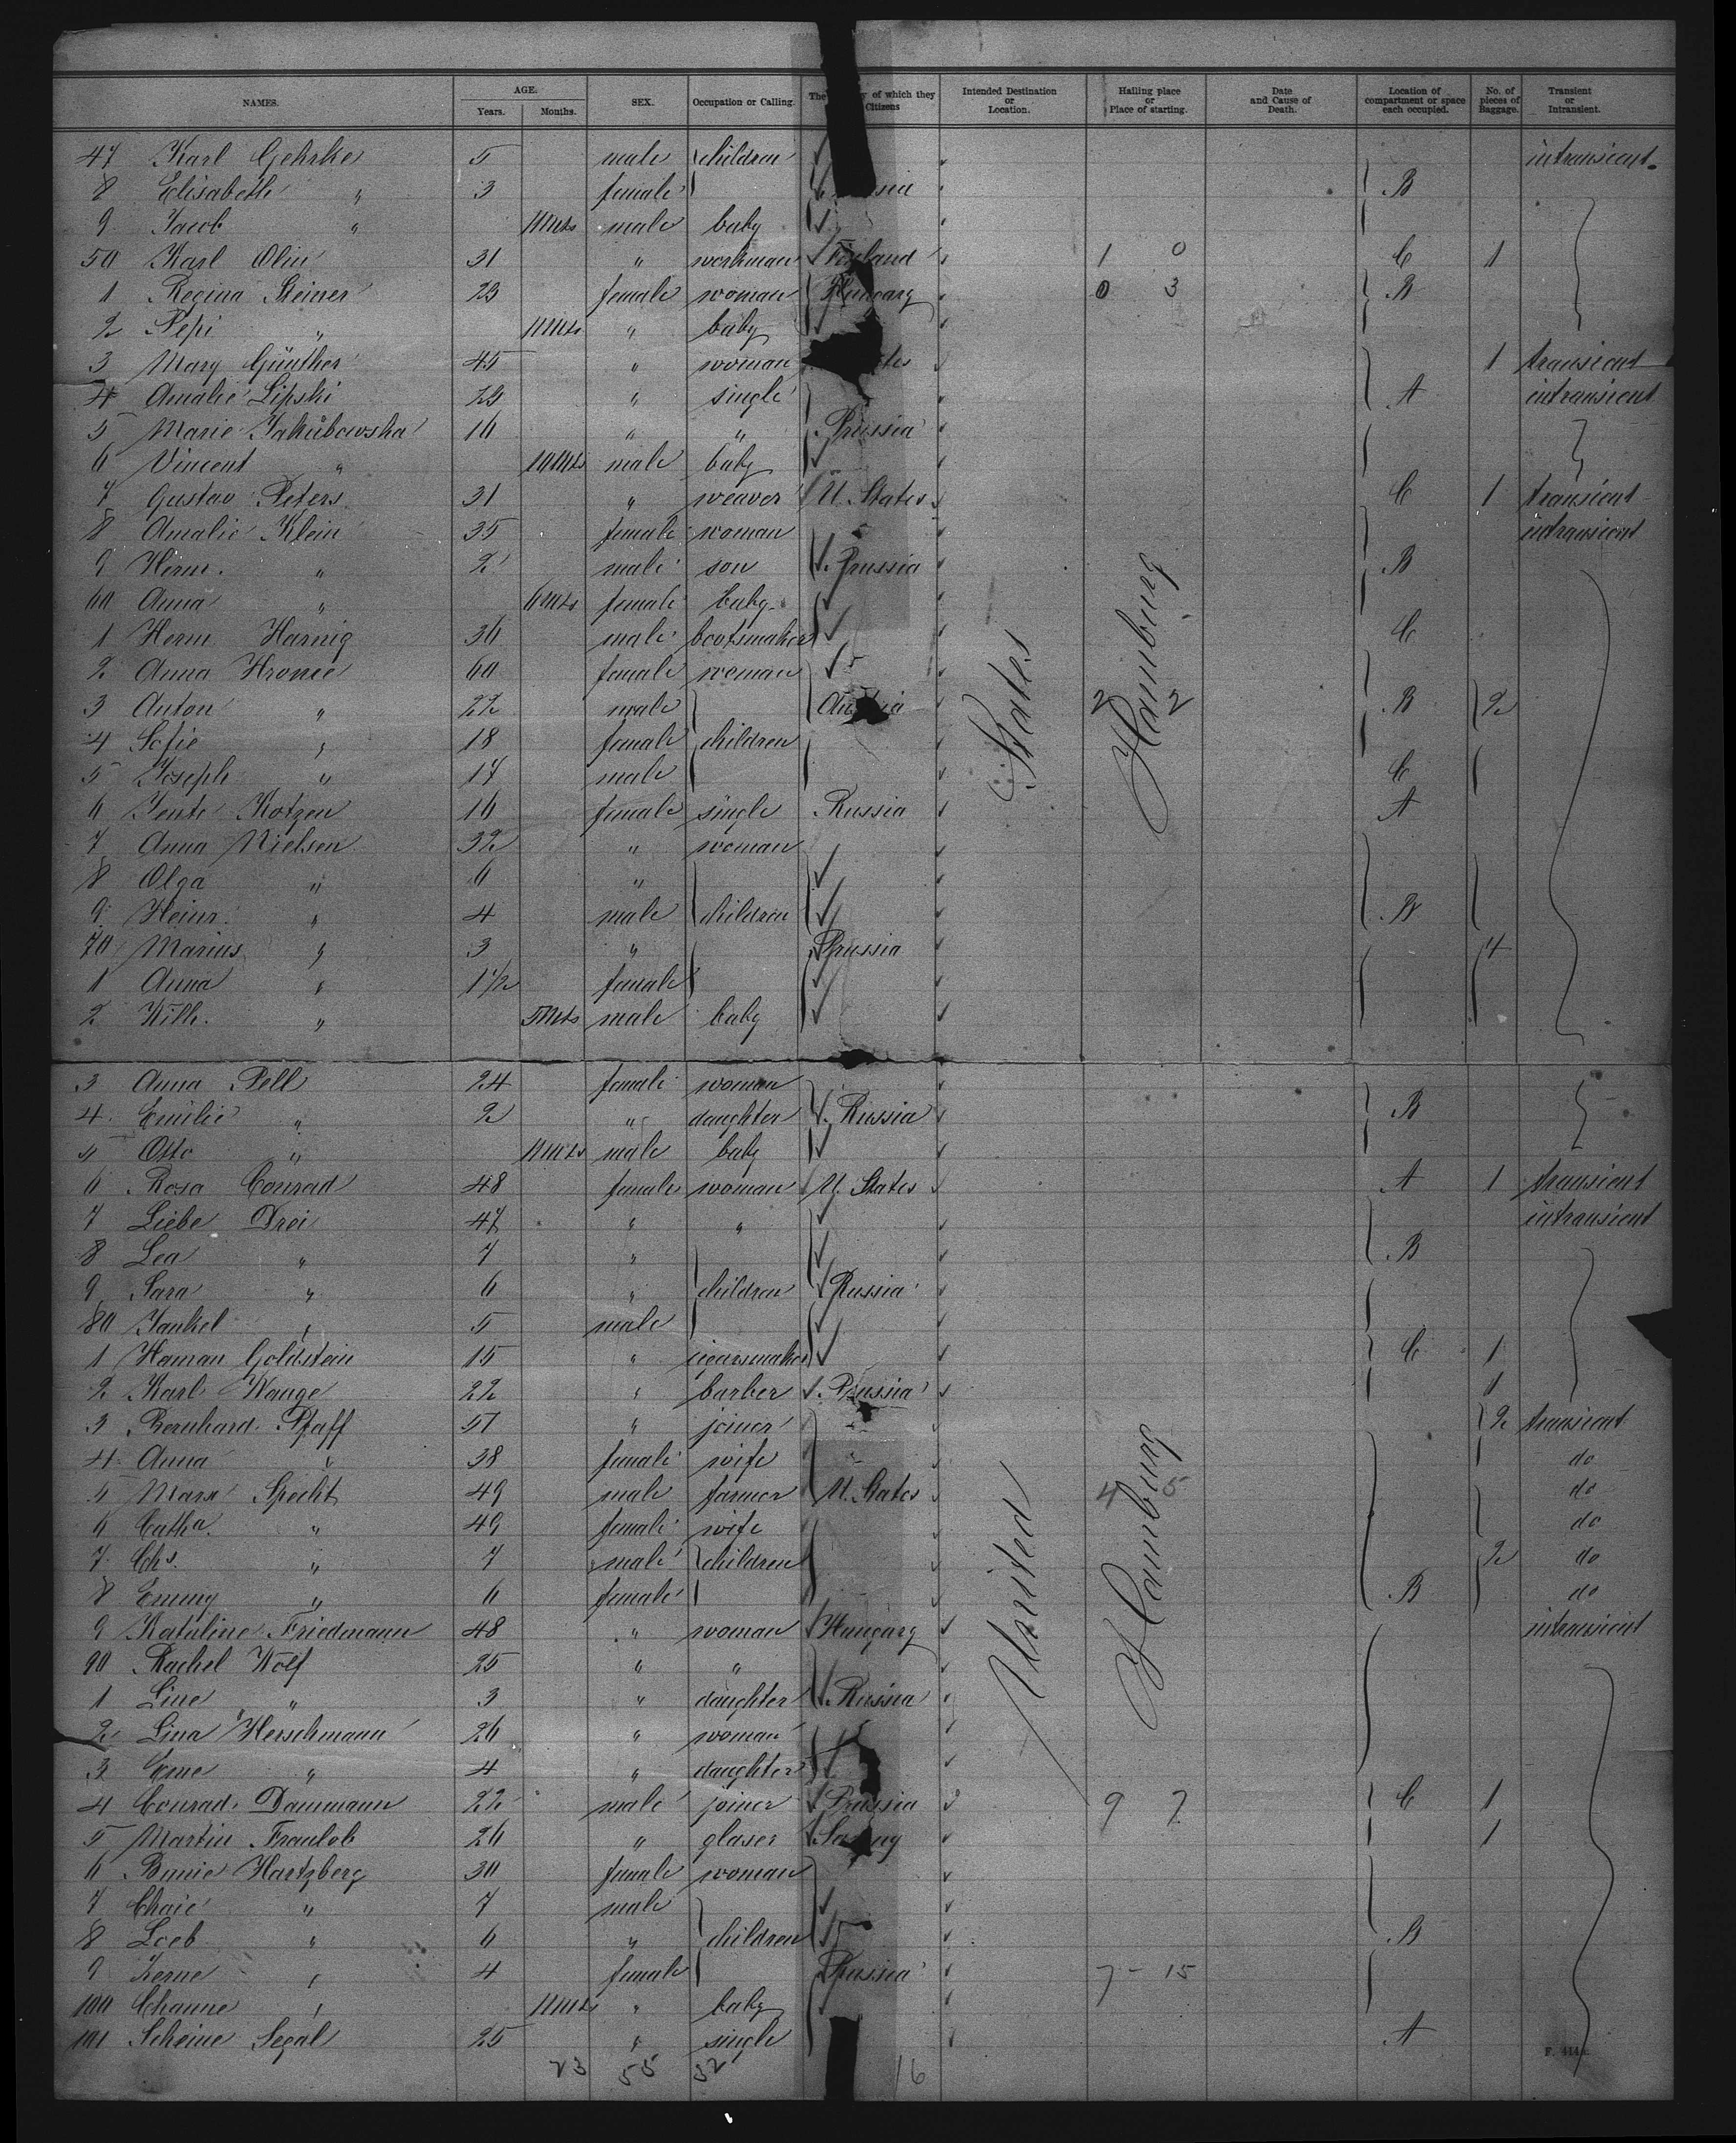 NAMES. AGE. Years. Months. SEX. Occupation or Calling. The y of which they Citizens Intended Destination or Location. Hailing place or Place of starting. Date and Cause of Death. Location of compartment or space each occupied. No. of pieces of Baggage. Transient or Intransient.
47 Karl Gehrke 5 male children intransient
8 Elisabeth " 3 female ssia B
9 Jacob " 11 Mts male baby
50 Karl Olin 31 " workman Finland 1 0 C 1
1 Regina Steiner 23 female woman Hungary 0 3 B
2 Pepi " 11 Mts " baby
3 Mary Günther 45 " woman tes 1 transient
4 Amalie Lipski 23 " single A intransient
5 Marie Jakubowska 16 " " Prussia
6 Vincent " 10 Mts male baby
7 Gustav Peters 31 " weaver U. States C 1 transient
8 Amalie Klein 35 female woman intransient
9 Herm. " 2 male son Prussia B
60 Anna " 6 Mts female baby
1 Herm Harnig 36 male bootsmaker C
2 Anna Hronie 60 female woman
3 Anton " 22 male Au ia 2 2 B 2
4 Sofie " 18 female children
5 Joseph " 17 male C
6 Jente Kotzen 16 female single Russia A
7 Anna Nielsen 32 " woman
8 Olga " 6 "
9 Heinr. " 4 male children B
70 Marius " 3 " Prussia 4
1 Anna " 1 1/2 female
2 Wilh. " 5 Mts male baby
States
Hamburg
3 Anna Pell 24 female woman
4 Emilie " 2 " daughter Russia B
5 Otto " 11 Mts male baby
6 Rosa Conrad 48 female woman U. States A 1 transient
7 Liebe Drei 47 " " intransient
8 Lea " 7 " B
9 Sara " 6 " children Russia
80 Jankel " 5 male
1 Haman Goldstein 15 " cigarsmaker C 1
2 Karl Wange 22 " barber Prussia 1
3 Bernhard Pfaff 51 " joiner 2 transient
4 Anna " 38 female wife do
5 Marx Specht 49 male farmer U. States 4 5 do
6 Catha. " 49 female wife do
7 Chs. " 7 male children 2 do
8 Emmy " 6 female B do
9 Kataline Friedmann 48 " woman Hungary intransient
90 Rachel Wolf 25 " "
1 Line " 3 " daughter Russia
2 Lina Herschmann 26 " woman
3 Eme " 4 " daughter
4 Conrad Dammann 22 male joiner Prussia 9 2 C 1
5 Martin Fraulob 26 " glaser 1
6 Bunie Hartzberg 30 female woman
7 Chaie " 7 male
8 Loeb " 6 " children B
9 Kerne " 4 female Prussia 7 - 15
100 Channe " 11 Mts " baby
101 Scheine Segal 25 " single A
United
Hamburg
23 55 32 16